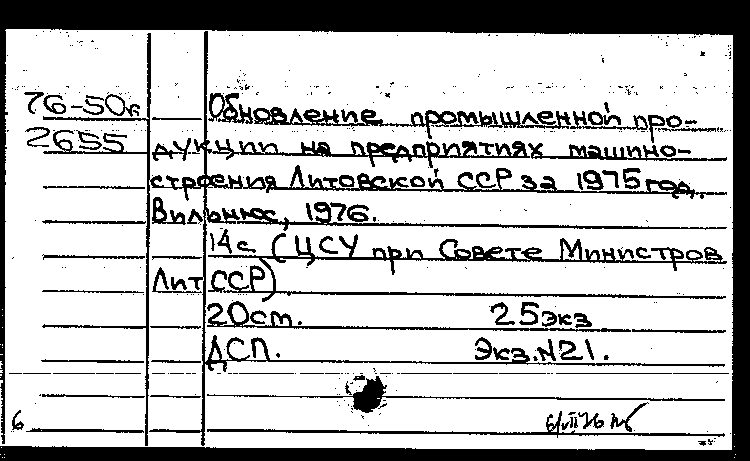 76-50к Обновление промышленной про-
2655 дукции на предприятиях машино-
строения Литовской ССР за 1975 год.
Вильнюс, 1976.
14с. (ЦСУ при Совете Министров
Лит ССР)
20см. 25экз
ДСП. Экз.N21.
6